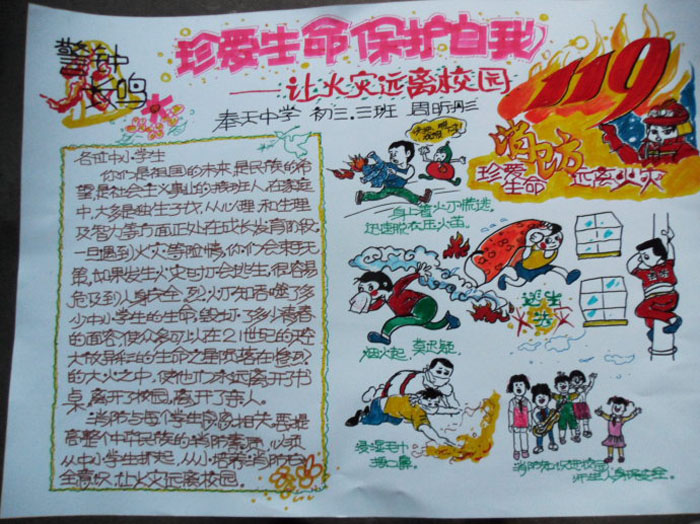 警钟
长鸣
珍爱生命 保护自我
——让火灾远离校园
奉天中学 初三.三班 周昕彤
119
消防
珍爱
生命
远离火灾
各位中小学生
你们是祖国的未来,是民族的希
望,是社会主义事业的接班人,在家庭
中,大多是独生子女,从心理和生理
及智力等方面正处在成长发育阶段,
一旦遇到火灾等险情,你们会束手无
策,如果发生火灾时不会逃生,很容易
危及到人身安全,烈火不知吞噬了多
少中小学生的生命,毁坏了多少青春
的面容,使众多可以在21世纪的天空
大放异彩的生命之星陨落在惨烈
的大火之中,使他们永远离开了书
桌,离开了校园,离开了亲人。
消防与每个学生息息相关。要提
高整个中华民族的消防素质,必须
从中小学生抓起,从小培养消防安
全意识,让火灾远离校园。
身上着火了慌逃
迅速脱衣压火苗。
逃生
火灾
烟火起,莫迟疑。
浸湿毛巾
捂口鼻。